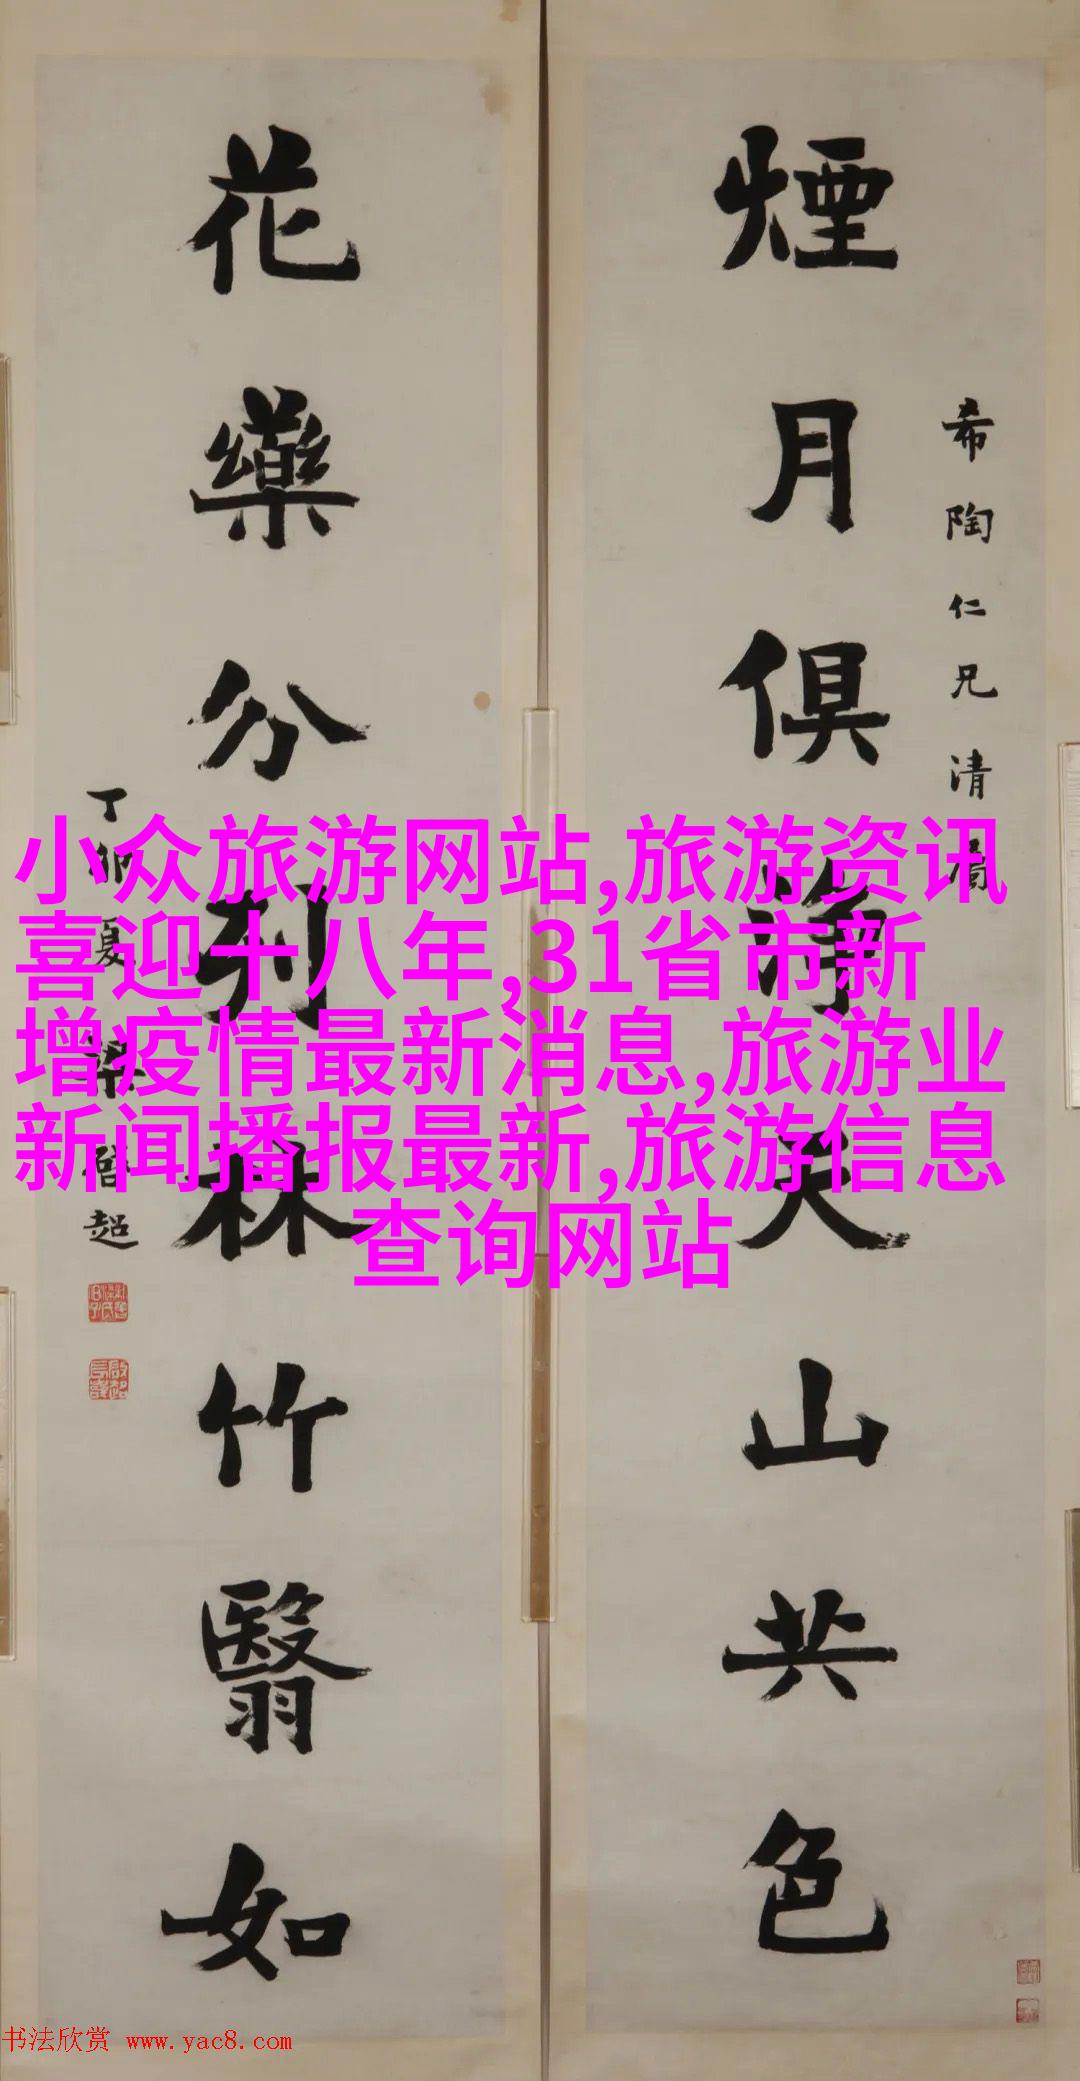 希陶仁兄清屬
煙月俱淨天山共色
花藥分列林竹翳如
丁卯夏梁啓超
小众旅游网站,旅游资讯
喜迎十八年,31省市新
增疫情最新消息,旅游业
新闻播报最新,旅游信息
查询网站
书法欣赏 www.yac8.com